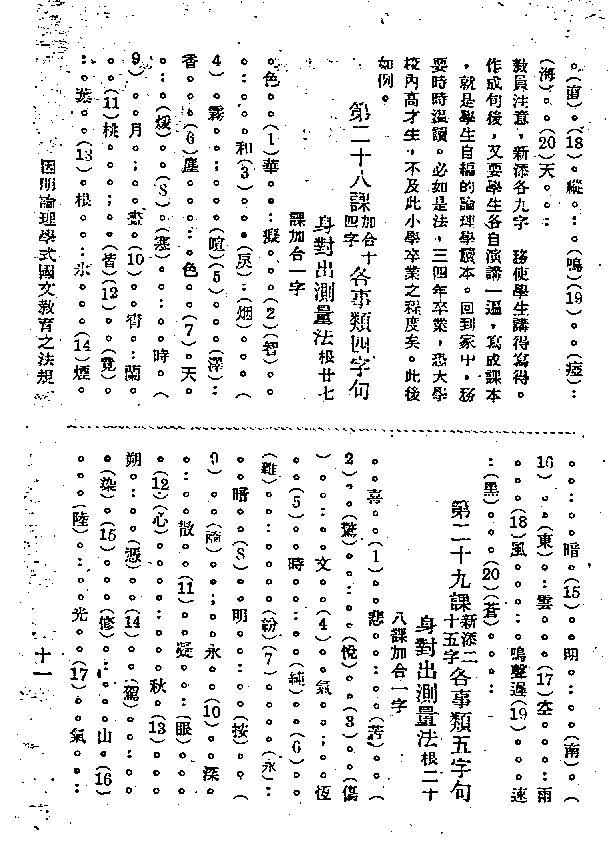 。(直)。(18)。縱。:。(鳴)(19)。。。(瘂):
(海)。。(20)天。:
教員注意，新添各九字 務使學生講得寫得。
作成句後，又要學生各自演講一遍，寫成課本
，就是學生自編的論理學讀本。回到家中，務
要時時溫讀。必如是法，三四年卒業，恐大學
校內高才生，不及此小學卒業之程度矣。此後
如例。
第二十八課加合十四字各事類四字句
身對出測量法根廿七課加合一字
。色。。(1)華。。:癡。。。(2)(智)。。
。:。。。和(3)。。。(戾):烟。。。(
4)。霧。:。。(喧)(5)。。。(澤):
香。。(6)塵。。:。色。。(7)。天。
。:。(煖)。。(8)。寒。:。。。時。(
9)。月。:。。(10)。宵:。蘭
。。(11)桃。。:。。(皆)(12)。。(覺)
:。。葉。。(13)。根。:。永。。(14)煙。
因明論理學式國文教育之法規
。。:。。暗。(15)。明:。。。(南)。(
16)。。(東)。:雲。。。(17)空。。。:雨
。。。。(18)風。。。:鳴聲遲(19)。。。。速
:。(黑)。。。(20)(蒼)。。。:
第二十九課新添二十五字各事類五字句
身對出測量法根二十八課加合一字
。。喜。(1)。悲。。:。。(苦)。。(
2)。。(驚)。。:。。(悅)。。(3)。。(傷
)。。:。。文。。(4)。氣。。:。。恆
。。(5)。。時。。:。。(純)。。(6)。。
(雜)。:。。。(紛)(7)。。。(永):
。。暗。。(8)。明。:。。。(按)。。(
9)。。(商)。。:。永。。(10)。。深
。:。。散。。(11)。凝。。:(眼)。。。
。(12)(心)。。。:。。秋。(13)。。
朔。:。。(憑)。。(14)。。駕。。:。。
。(染)。(15)。。(修)。:。。山。(16)
。。。(陸)。:。。光。。(17)。氣。。:
十一